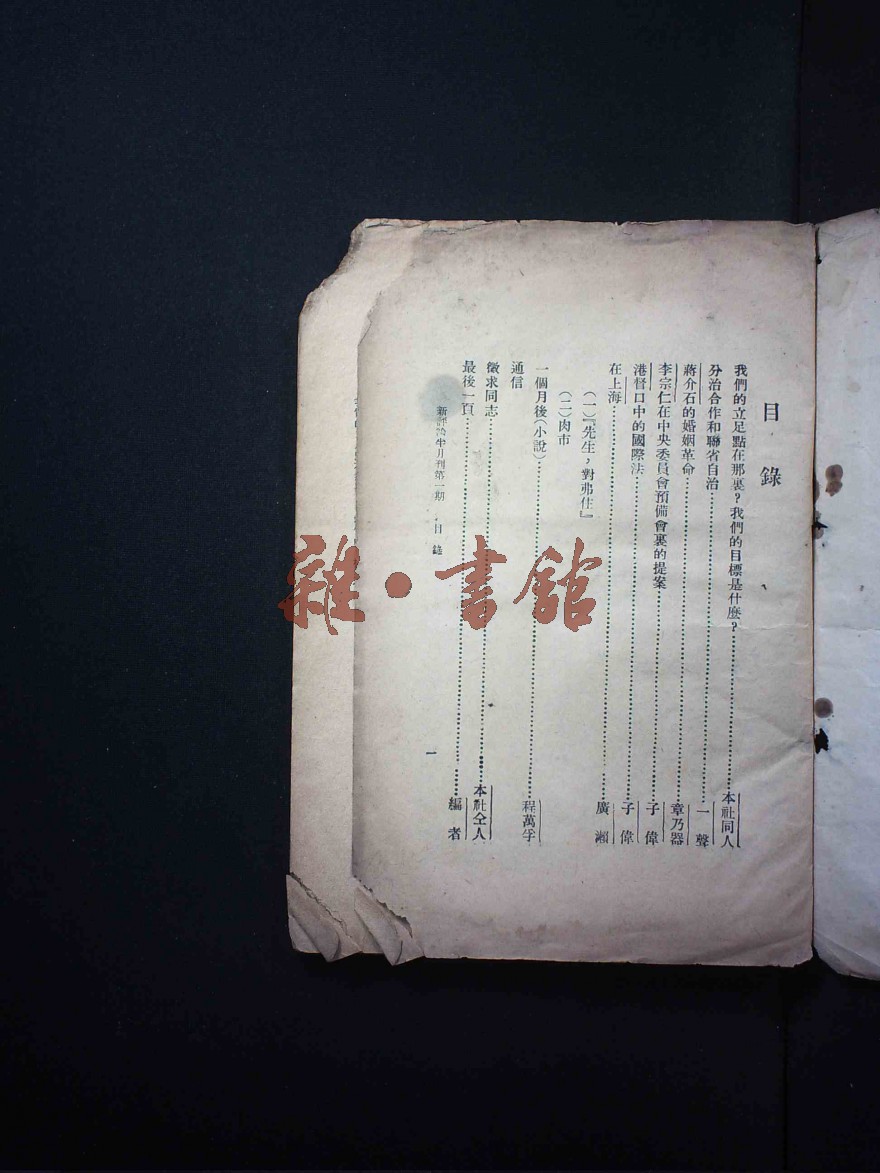 目錄
我們的立足點在那裏？我們的目標是什麼？……本社同人
分治合作和聯省自治……一聲
蔣介石的婚姻革命……章乃器
李宗仁在中央委員會預備會裏的提案……子偉
港督口中的國際法……子偉
在上海……廣瀨
（一）『先生，對弗住』
（二）肉市
一個月後（小說）……程萬孚
通信
徵求同志……本社仝人
最後一頁……編者
新評論半月刊第一期 目錄
一
雜·書館